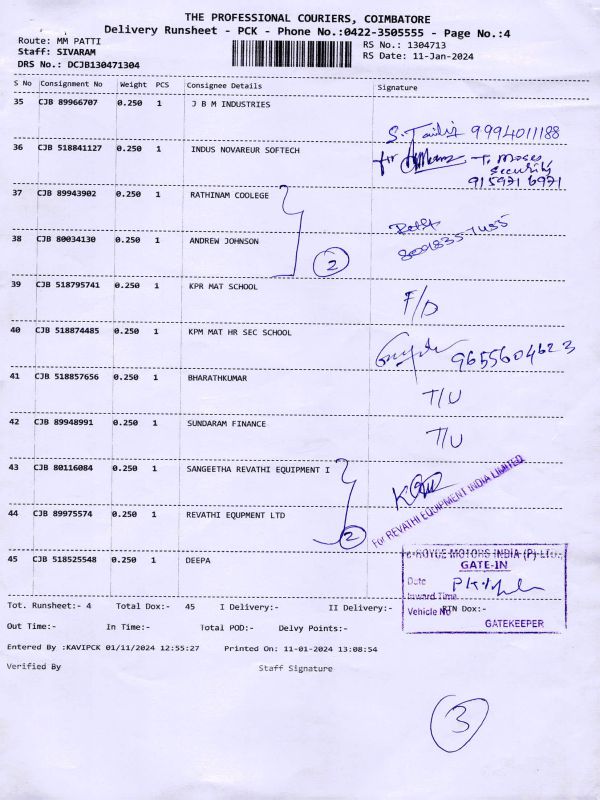 THE PROFESSIONAL COURIERS, COIMBATORE
Delivery Runsheet - PCK - Phone No.:0422-3505555 - Page No.:4
Route: MM PATTI
RS No.: 1304713
Staff: SIVARAM
RS Date: 11-Jan-2024
DRS No.: DCJB130471304
S No Consignment No Weight PCS Consignee Details Signature
35 CJB 89966707 0.250 1 J B M INDUSTRIES
S. 9994011188
36 CJB 518841127 0.250 1 INDUS NOVAREUR SOFTECH
for T. Moses
Security
915971 6971
37 CJB 89943902 0.250 1 RATHINAM COOLEGE
38 CJB 80034130 0.250 1 ANDREW JOHNSON
2
39 CJB 518795741 0.250 1 KPR MAT SCHOOL
F/D
40 CJB 518874485 0.250 1 KPM MAT HR SEC SCHOOL
9655604623
41 CJB 518857656 0.250 1 BHARATHKUMAR
T/U
42 CJB 89948991 0.250 1 SUNDARAM FINANCE
T/U
43 CJB 80116084 0.250 1 SANGEETHA REVATHI EQUIPMENT I
44 CJB 89975574 0.250 1 REVATHI EQUPMENT LTD
2
For REVATHI EQUIPMENT INDIA LIMITED
45 CJB 518525548 0.250 1 DEEPA
ROYCE MOTORS INDIA (P) LTD.,
GATE-IN
Date
Inward Time
Vehicle No
GATEKEEPER
Tot. Runsheet:- 4 Total Dox:- 45 I Delivery:- II Delivery:- RTN Dox:-
Out Time:- In Time:- Total POD:- Delvy Points:-
Entered By :KAVIPCK 01/11/2024 12:55:27 Printed On: 11-01-2024 13:08:54
Verified By Staff Signature
3